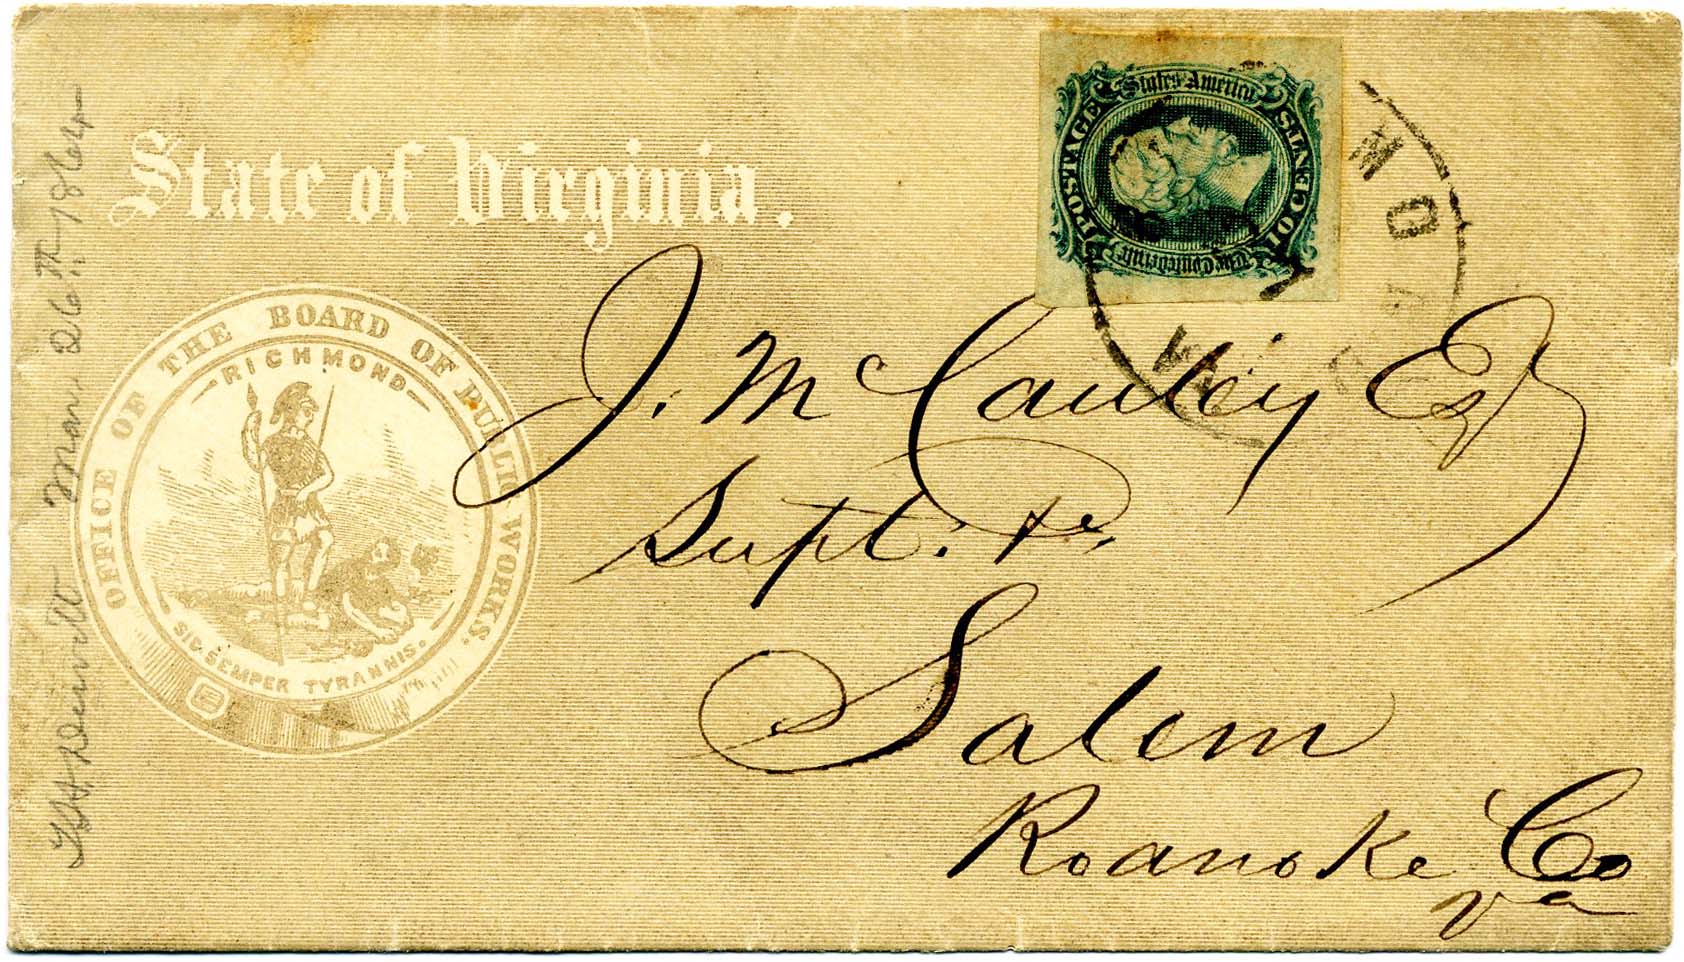 State of Virginia.
OFFICE OF THE BOARD OF PUBLIC WORKS.
RICHMOND
SIC SEMPER TYRANNIS.
The Confederate States America
POSTAGE
TEN CENTS
MO
J. McCauley Esq
Supt. &c,
Salem
Roanoke Co
Va
Mar. 26th 1864